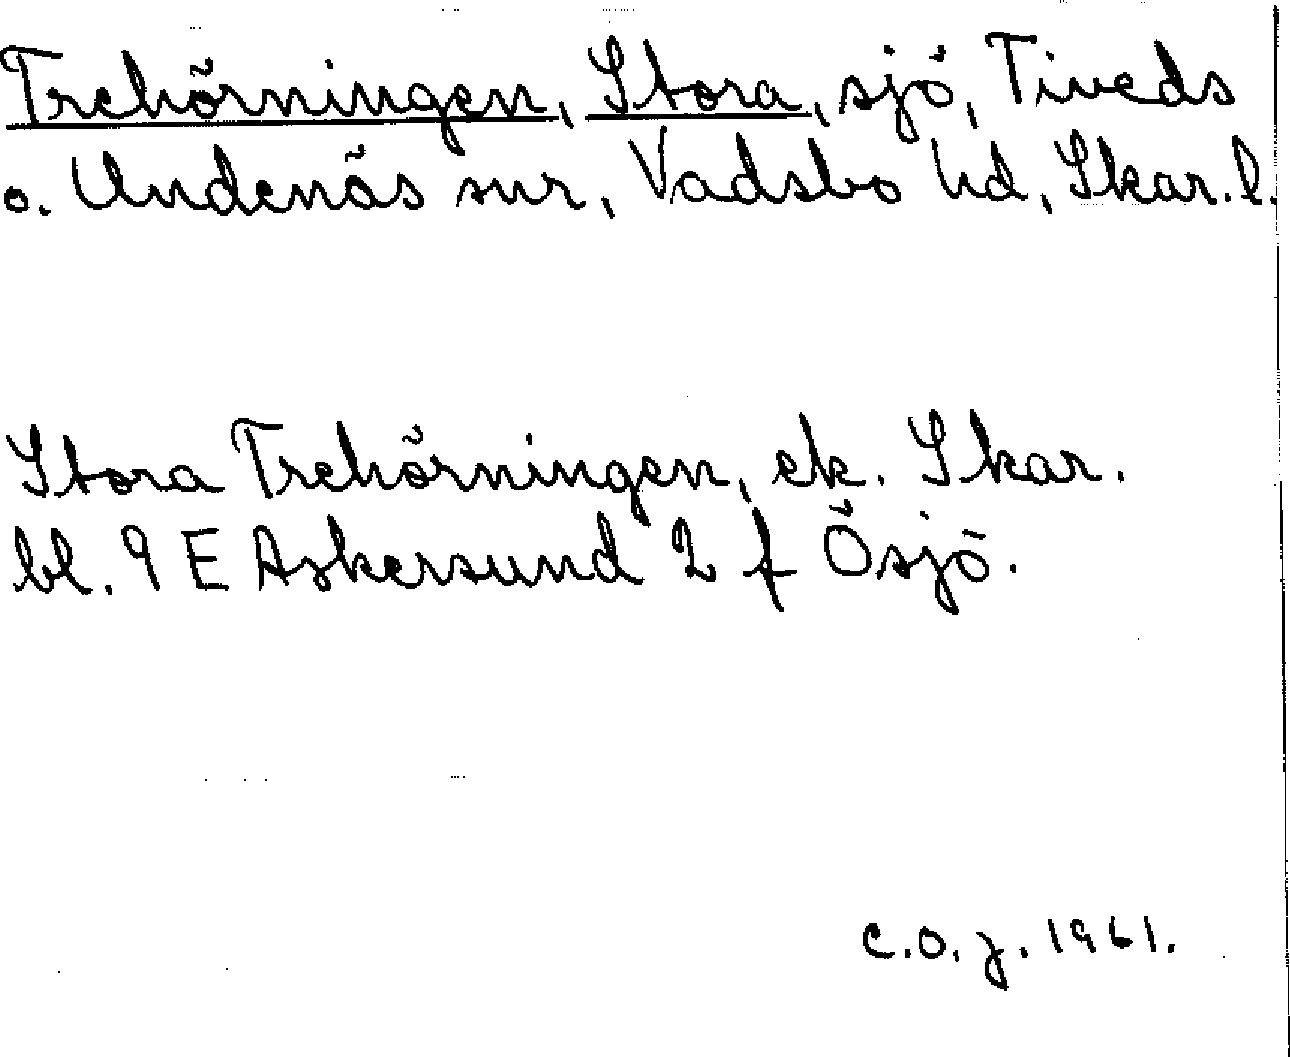 Trehörningen, Stora, sjö, Tiveds
o. Undenäs snr, Vadsbo hd, Skar. l.
Stora Trehörningen, ek. Skar.
bl. 9 E Askersund 2 f Ösjö.
C.O.J. 1961.